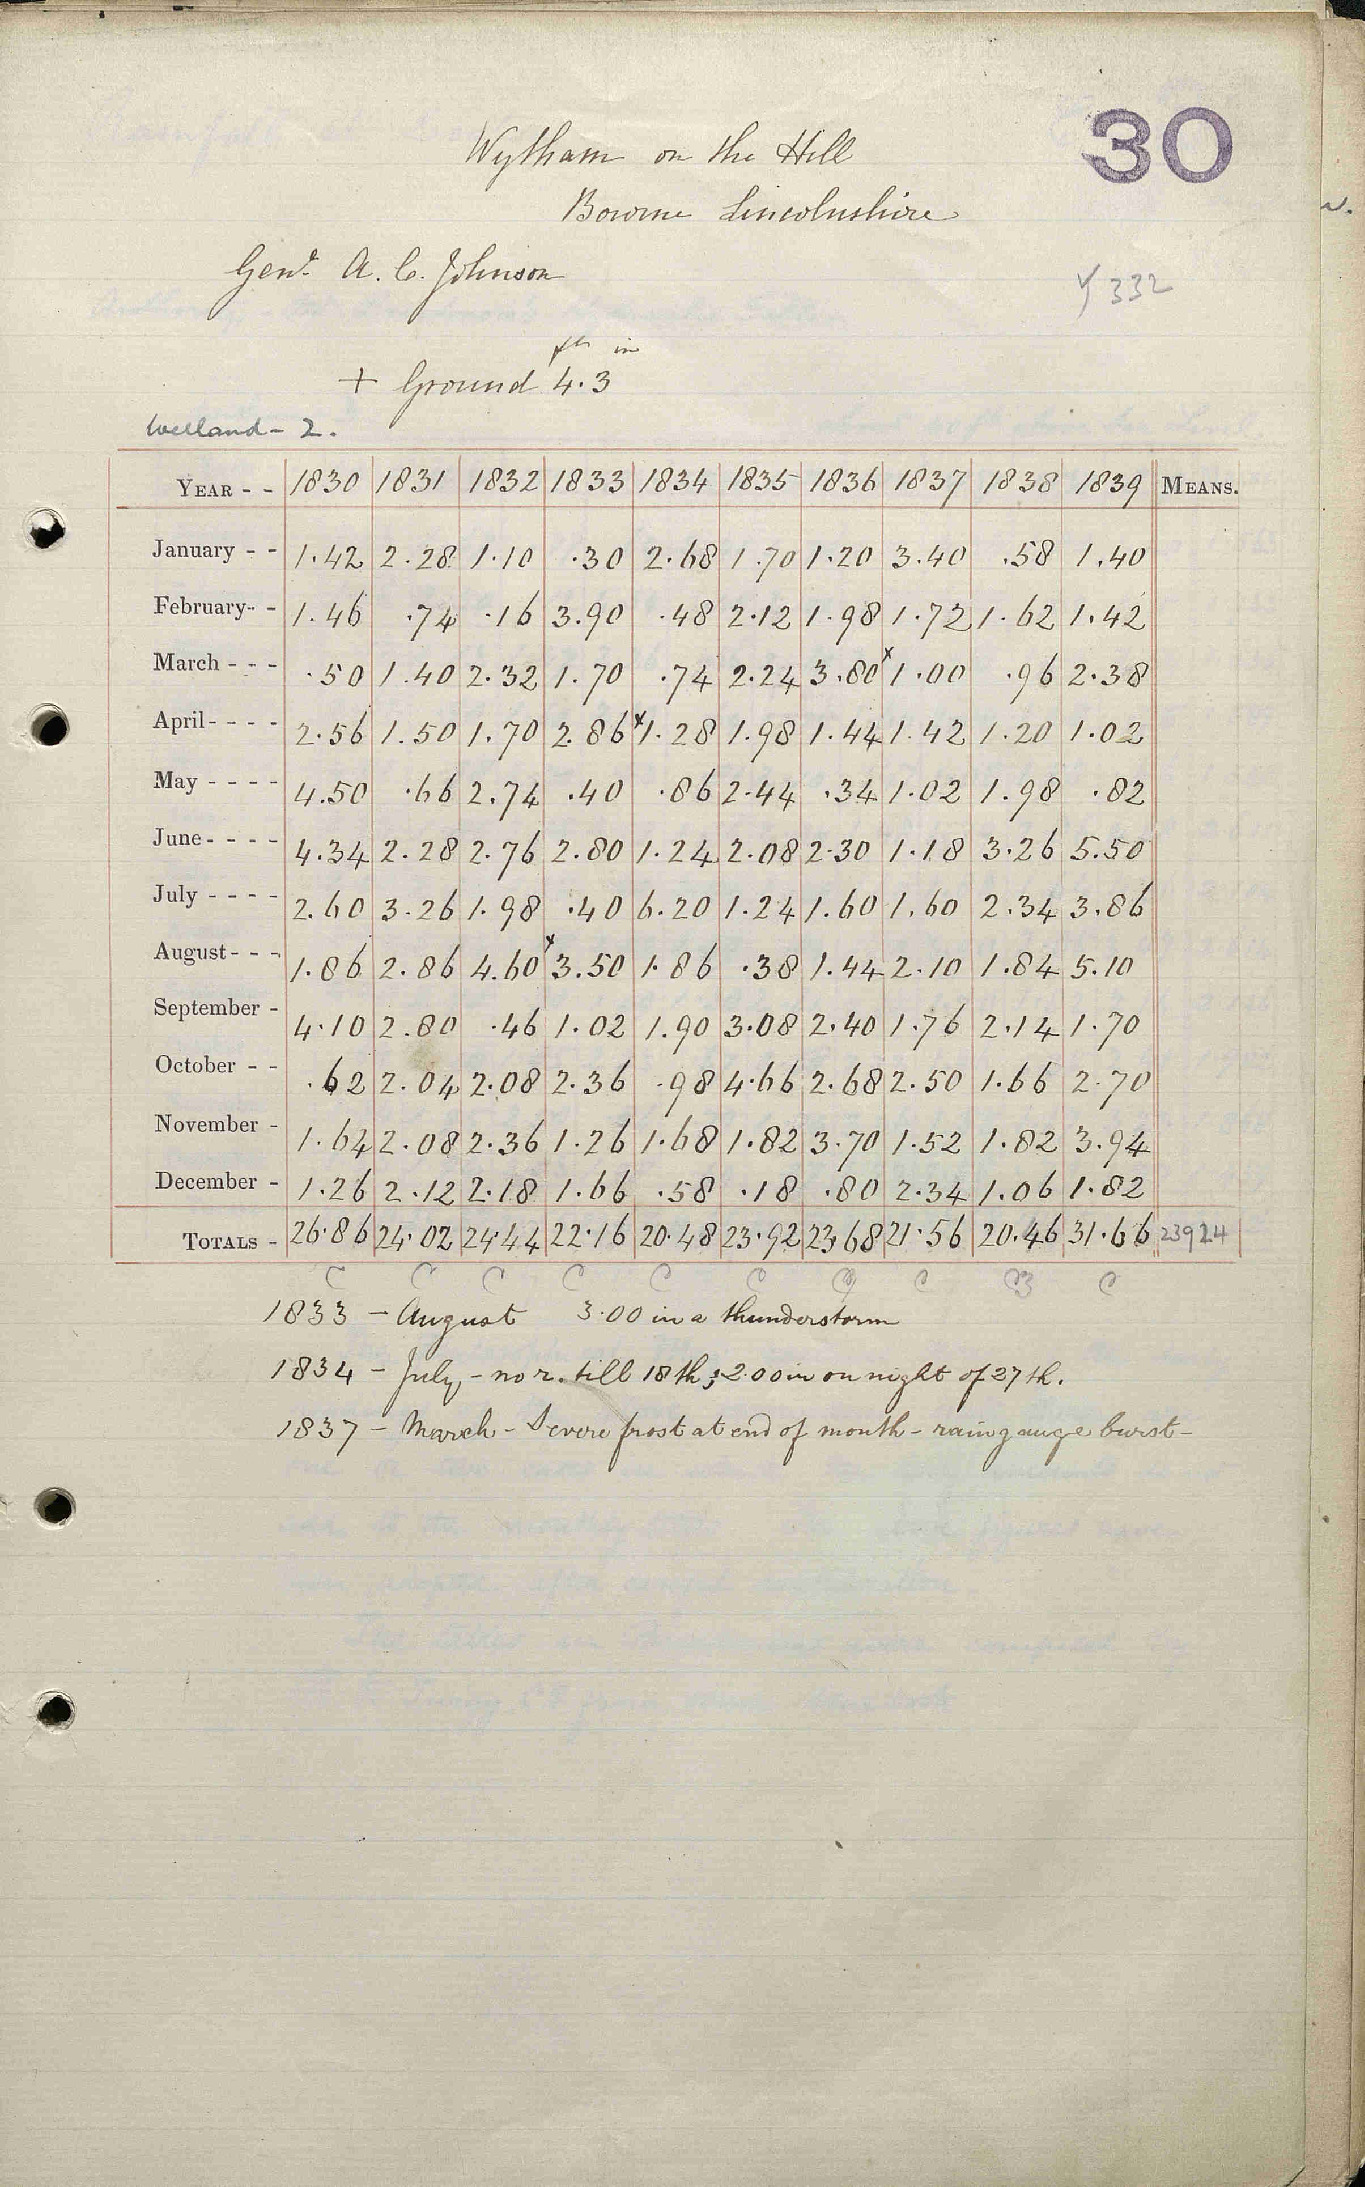 30
Wytham on the Hill
Bourne Lincolnshire
Genl. A. C. Johnson
Y 332
ft in
+ Ground 4.3
Welland - 2.
YEAR - - 1830 1831 1832 1833 1834 1835 1836 1837 1838 1839 MEANS.
January - - 1.42 2.28 1.10 .30 2.68 1.70 1.20 3.40 .58 1.40
February- - 1.46 .74 .16 3.90 .48 2.12 1.98 1.72 1.62 1.42
March - - - .50 1.40 2.32 1.70 .74 2.24 3.80 x1.00 .96 2.38
April- - - - 2.56 1.50 1.70 2.86 x1.28 1.98 1.44 1.42 1.20 1.02
May - - - - 4.50 .66 2.74 .40 .86 2.44 .34 1.02 1.98 .82
June- - - - 4.34 2.28 2.76 2.80 1.24 2.08 2.30 1.18 3.26 5.50
July - - - - 2.60 3.26 1.98 .40 6.20 1.24 1.60 1.60 2.34 3.86
August- - - 1.86 2.86 4.60 x3.50 1.86 .38 1.44 2.10 1.84 5.10
September - 4.10 2.80 .46 1.02 1.90 3.08 2.40 1.76 2.14 1.70
October - - .62 2.04 2.08 2.36 .98 4.66 2.68 2.50 1.66 2.70
November - 1.64 2.08 2.36 1.26 1.68 1.82 3.70 1.52 1.82 3.94
December - 1.26 2.12 2.18 1.66 .58 .18 .80 2.34 1.06 1.82
TOTALS - 26.86 24.02 24.44 22.16 20.48 23.92 23.68 21.56 20.46 31.66 239 24
1833 - August 3.00 in a thunderstorm
1834 - July, - no r. till 18th; 2.00 in on night of 27th.
1837 - March - Severe frost at end of month - raingauge burst -